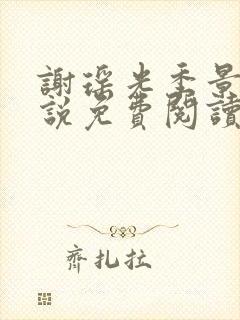 謝瑤光季景
說免費閱讀
齊扎拉